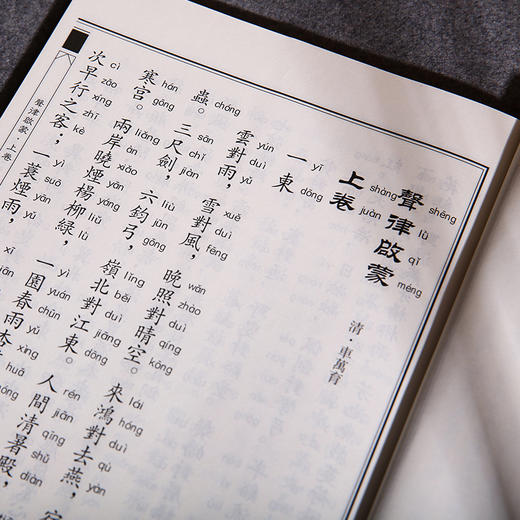 聲律啟蒙
shēng lǜ qǐ méng
清·車萬育
上卷
shàng juàn
一東
yī dōng
雲對雨，雪對風，晚照對晴空。來鴻對去燕，宿
yún duì yǔ xuě duì fēng wǎn zhào duì qíng kōng lái hóng duì qù yàn
蟲。三尺劍，六鈞弓，嶺北對江東。人間清暑殿，
chóng sān chǐ jiàn liù jūn gōng lǐng běi duì jiāng dōng rén jiān qīng shǔ diàn
寒宮。兩岸曉煙楊柳綠，一園春雨杏花
hán gōng liǎng àn xiǎo yān yáng liǔ lǜ yì yuán chūn yǔ xìng huā
次早行之客；一蓑煙雨，
cì zǎo xíng zhī kè yì suō yān yǔ xī
聲律啟蒙·上卷